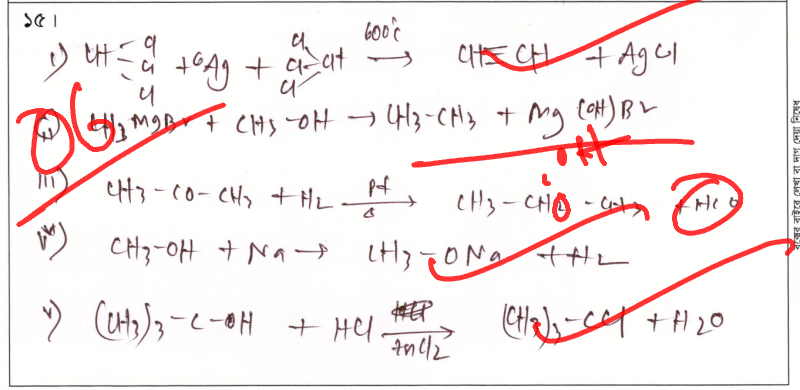 ১৫।
i) CH Cl Cl Cl + 6Ag + Cl Cl Cl CH 600°C → CH≡CH + AgCl
ii) CH3MgBr + CH3-OH → CH3-CH3 + Mg(OH)Br
06
OH
iii) CH3-CO-CH3 + H2 Pt Δ → CH3-CH2-CH3 + H2O
iv) CH3-OH + Na → CH3-ONa + H2
v) (CH3)3-C-OH + HCl ZnCl2 → (CH3)3-CCl + H2O
বক্সের বাইরে লেখা বা দাগ দেয়া নিষেধ